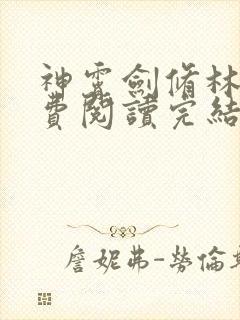 神霄劍脩林
費閱讀完結
詹妮弗-勞倫斯